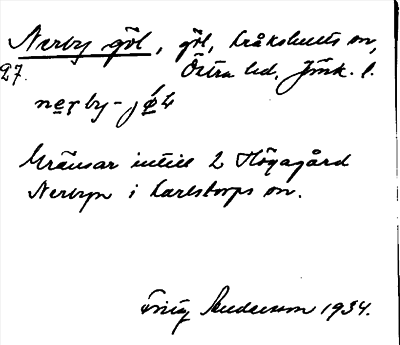 Nerby göl, göl, Kråkshults sn,
27. Östra hd, Jönk. l.
Gränsar intill 2 Högagård
Nerbyn i Karlstorps sn.
Fritz Andersson 1934.